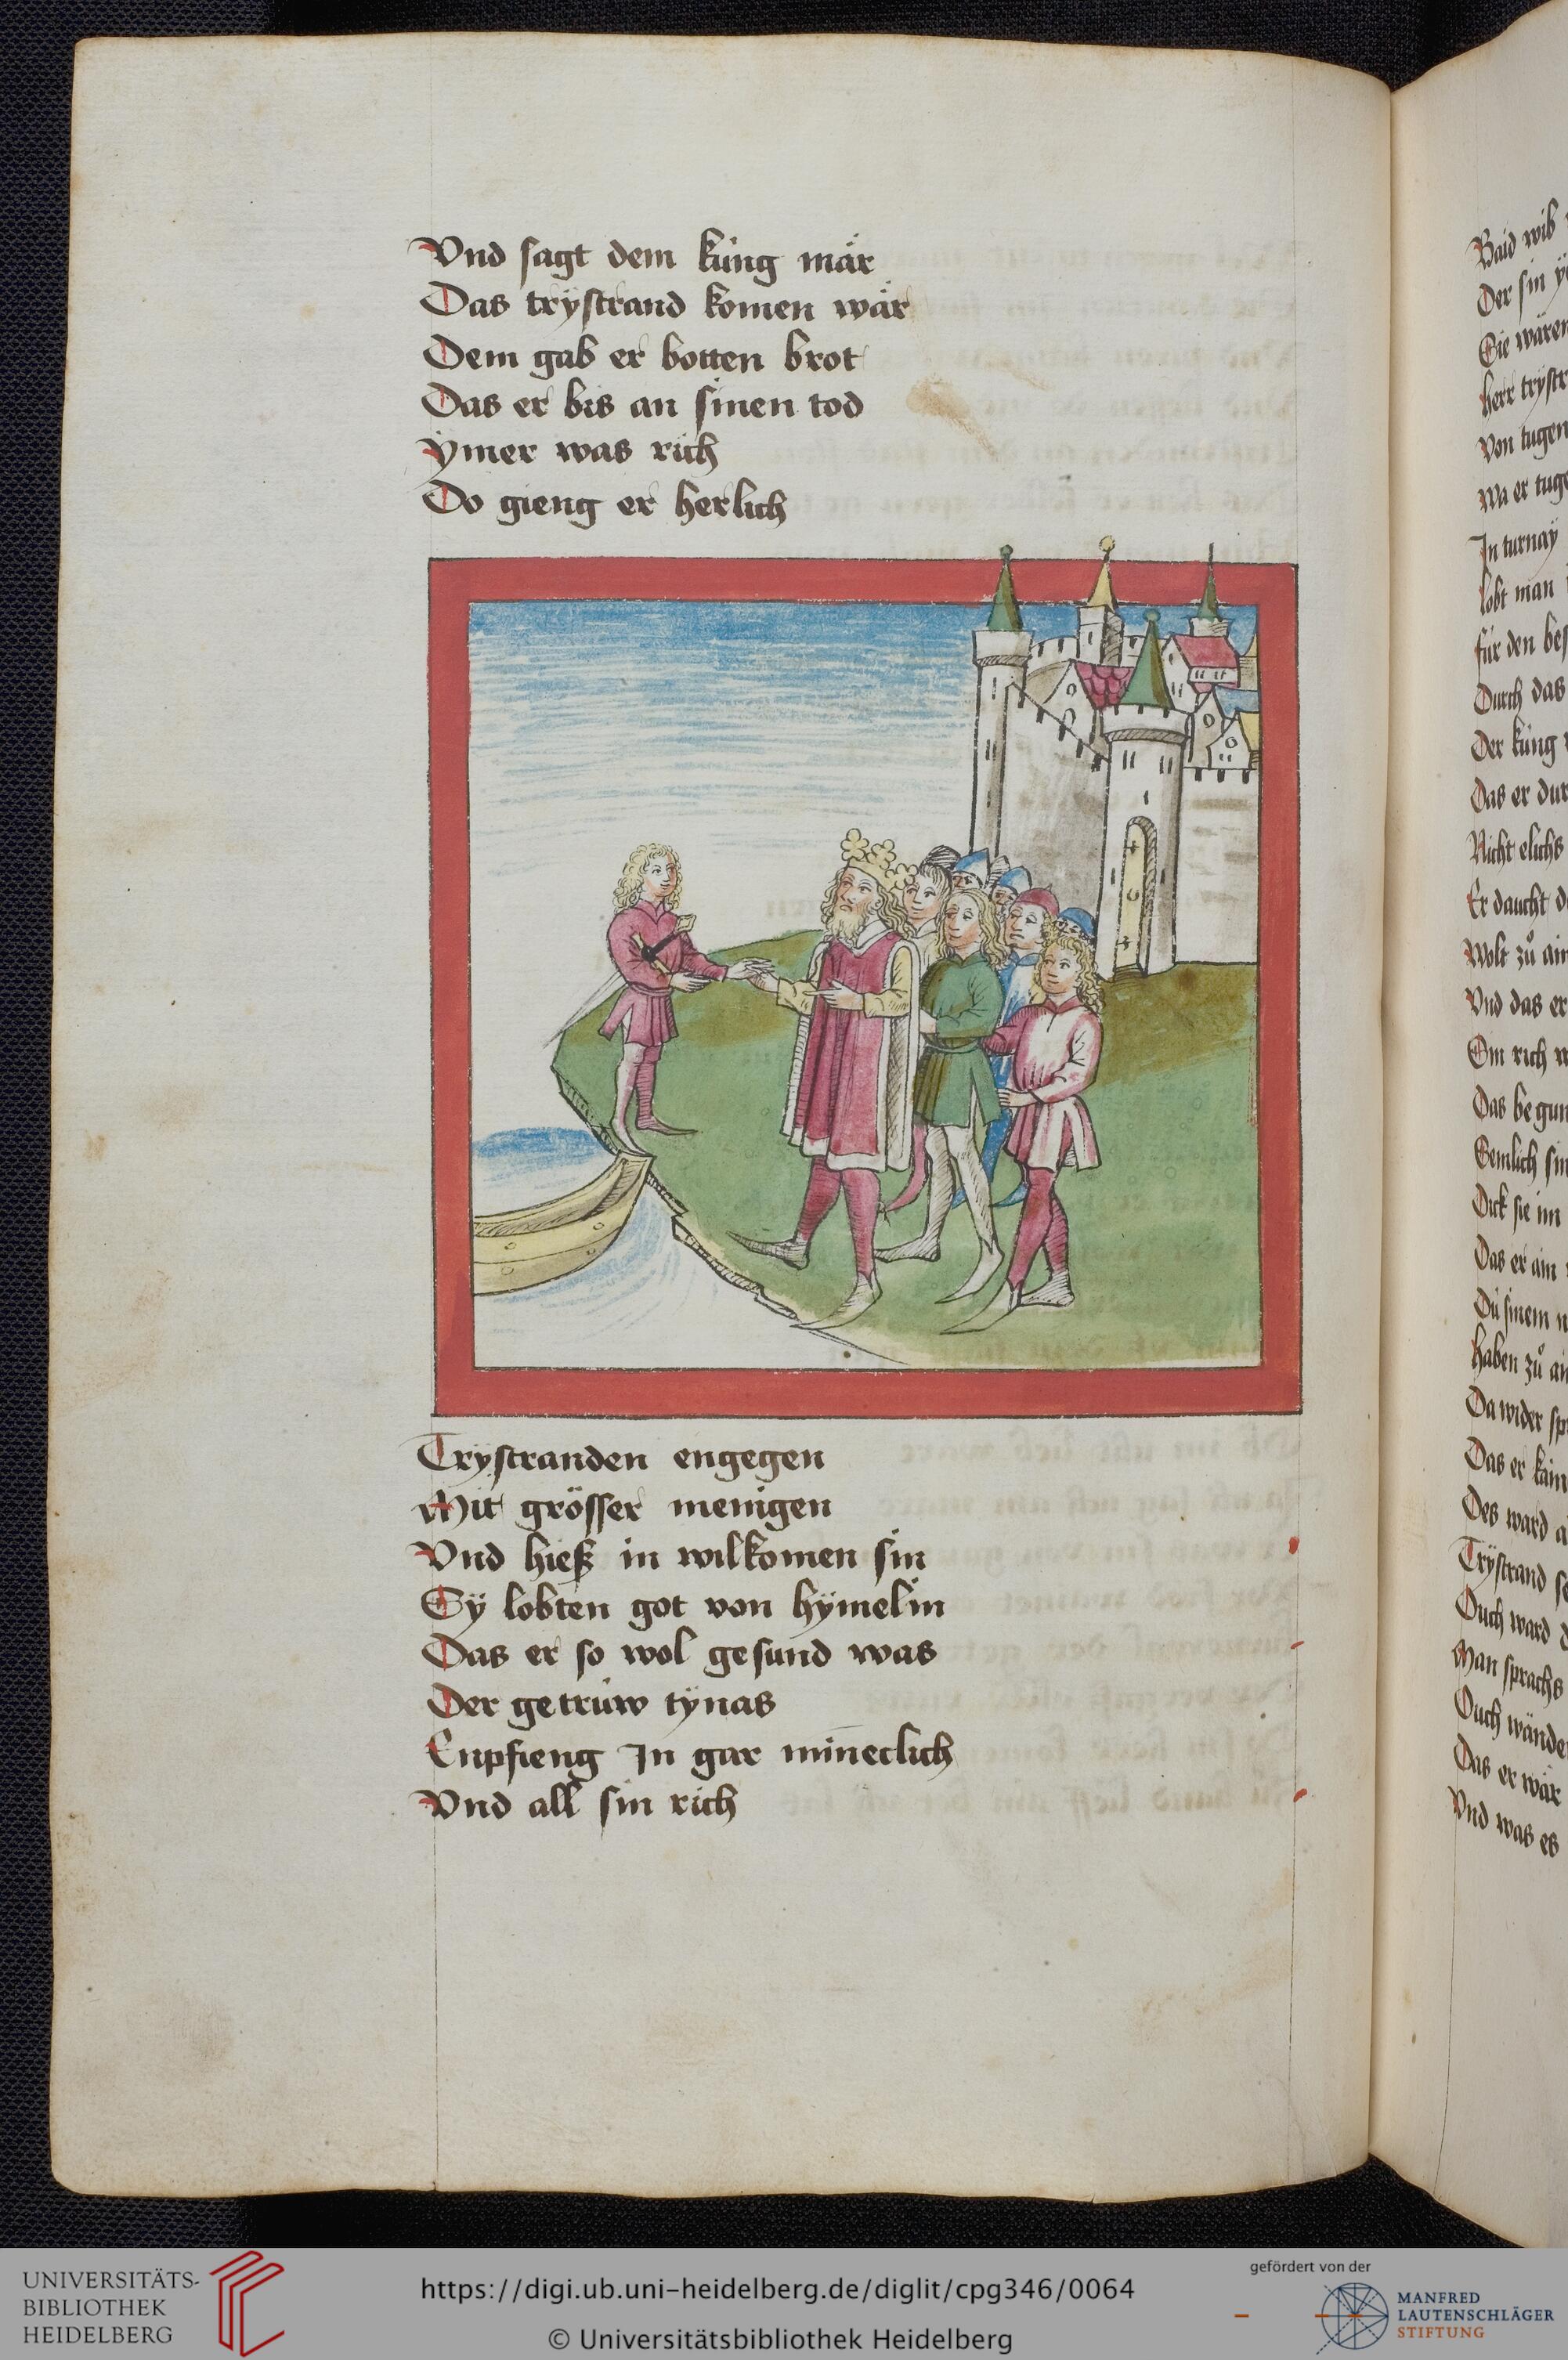 Vnd sagt dem küng mär
Das trÿstrand komen wär
Dem gab er botten brot
Das er bis an sinen tod
ẏmer was rich
Do gieng er herlich
Trystranden engegen
Mit grösser menigen
Vnd hieß in wilkomen sin
Sÿ lobten got von hÿmelin
Das er so wol gesund was
Der getrüw tÿnas
Enpfieng In gar min̄eclich
Vnd all sin rich
Baid wib
Der sin
Sie waren
herr trystr
Von tugen
Wa er tuge
In turnaÿ
lobt man
für den bes
Durch das
Der küng
Das er dur
Nicht elichs
Er daucht d
Wolt zů ain
Vnd das er
Om rich
Das begun
Gemlich sin
Dick sie im
Das er ain
Dü sinem
haben zů ain
Da wider sp
Das er kain
Des ward a
Trÿstrand se
Ouch ward
Man sprachs
Ouch wände
Das er wär
Vnd was es
UNIVERSITÄTS-
BIBLIOTHEK
HEIDELBERG
https://digi.ub.uni-heidelberg.de/diglit/cpg346/0064
© Universitätsbibliothek Heidelberg
gefördert von der
MANFRED
LAUTENSCHLÄGER
STIFTUNG